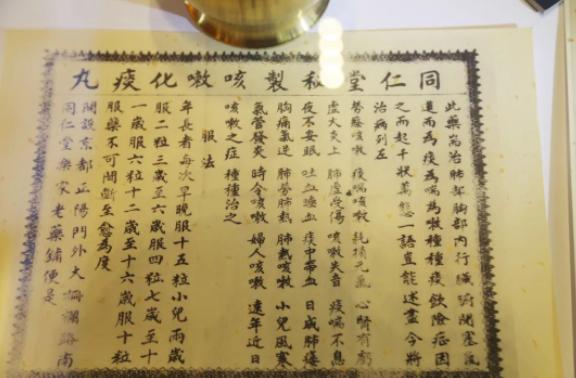 同仁堂秘製咳嗽化痰丸
此藥耑治肺部胸部內行臟腑閉塞
道而為痰為喘為嗽種種痰飲險症因
之而起千狀萬態一語豈能述盡今將
治病列左
勞廢咳嗽 痰喘咳嗽 耗損元氣 心腎有虧
虛火炎上 肺虛受傷 咳嗽失音 痰喘不息
夜不安眠 吐血嗆血 痰中帶血 日成肺癆
胸痛氣逆 肺勞肺熱 肺熱咳嗽 小兒風寒
氣管發炎 時令咳嗽 婦人咳嗽 遠年近日
咳嗽之症 種種治之
服法
年長者每次早晚服十五粒小兒兩歲
服二粒三歲至六歲服四粒七歲至十
一歲服六粒十二歲至十六歲服十粒
服藥不可間斷至愈為度
開設京都正陽門外大柵欄路南
同仁堂樂家老藥鋪便是